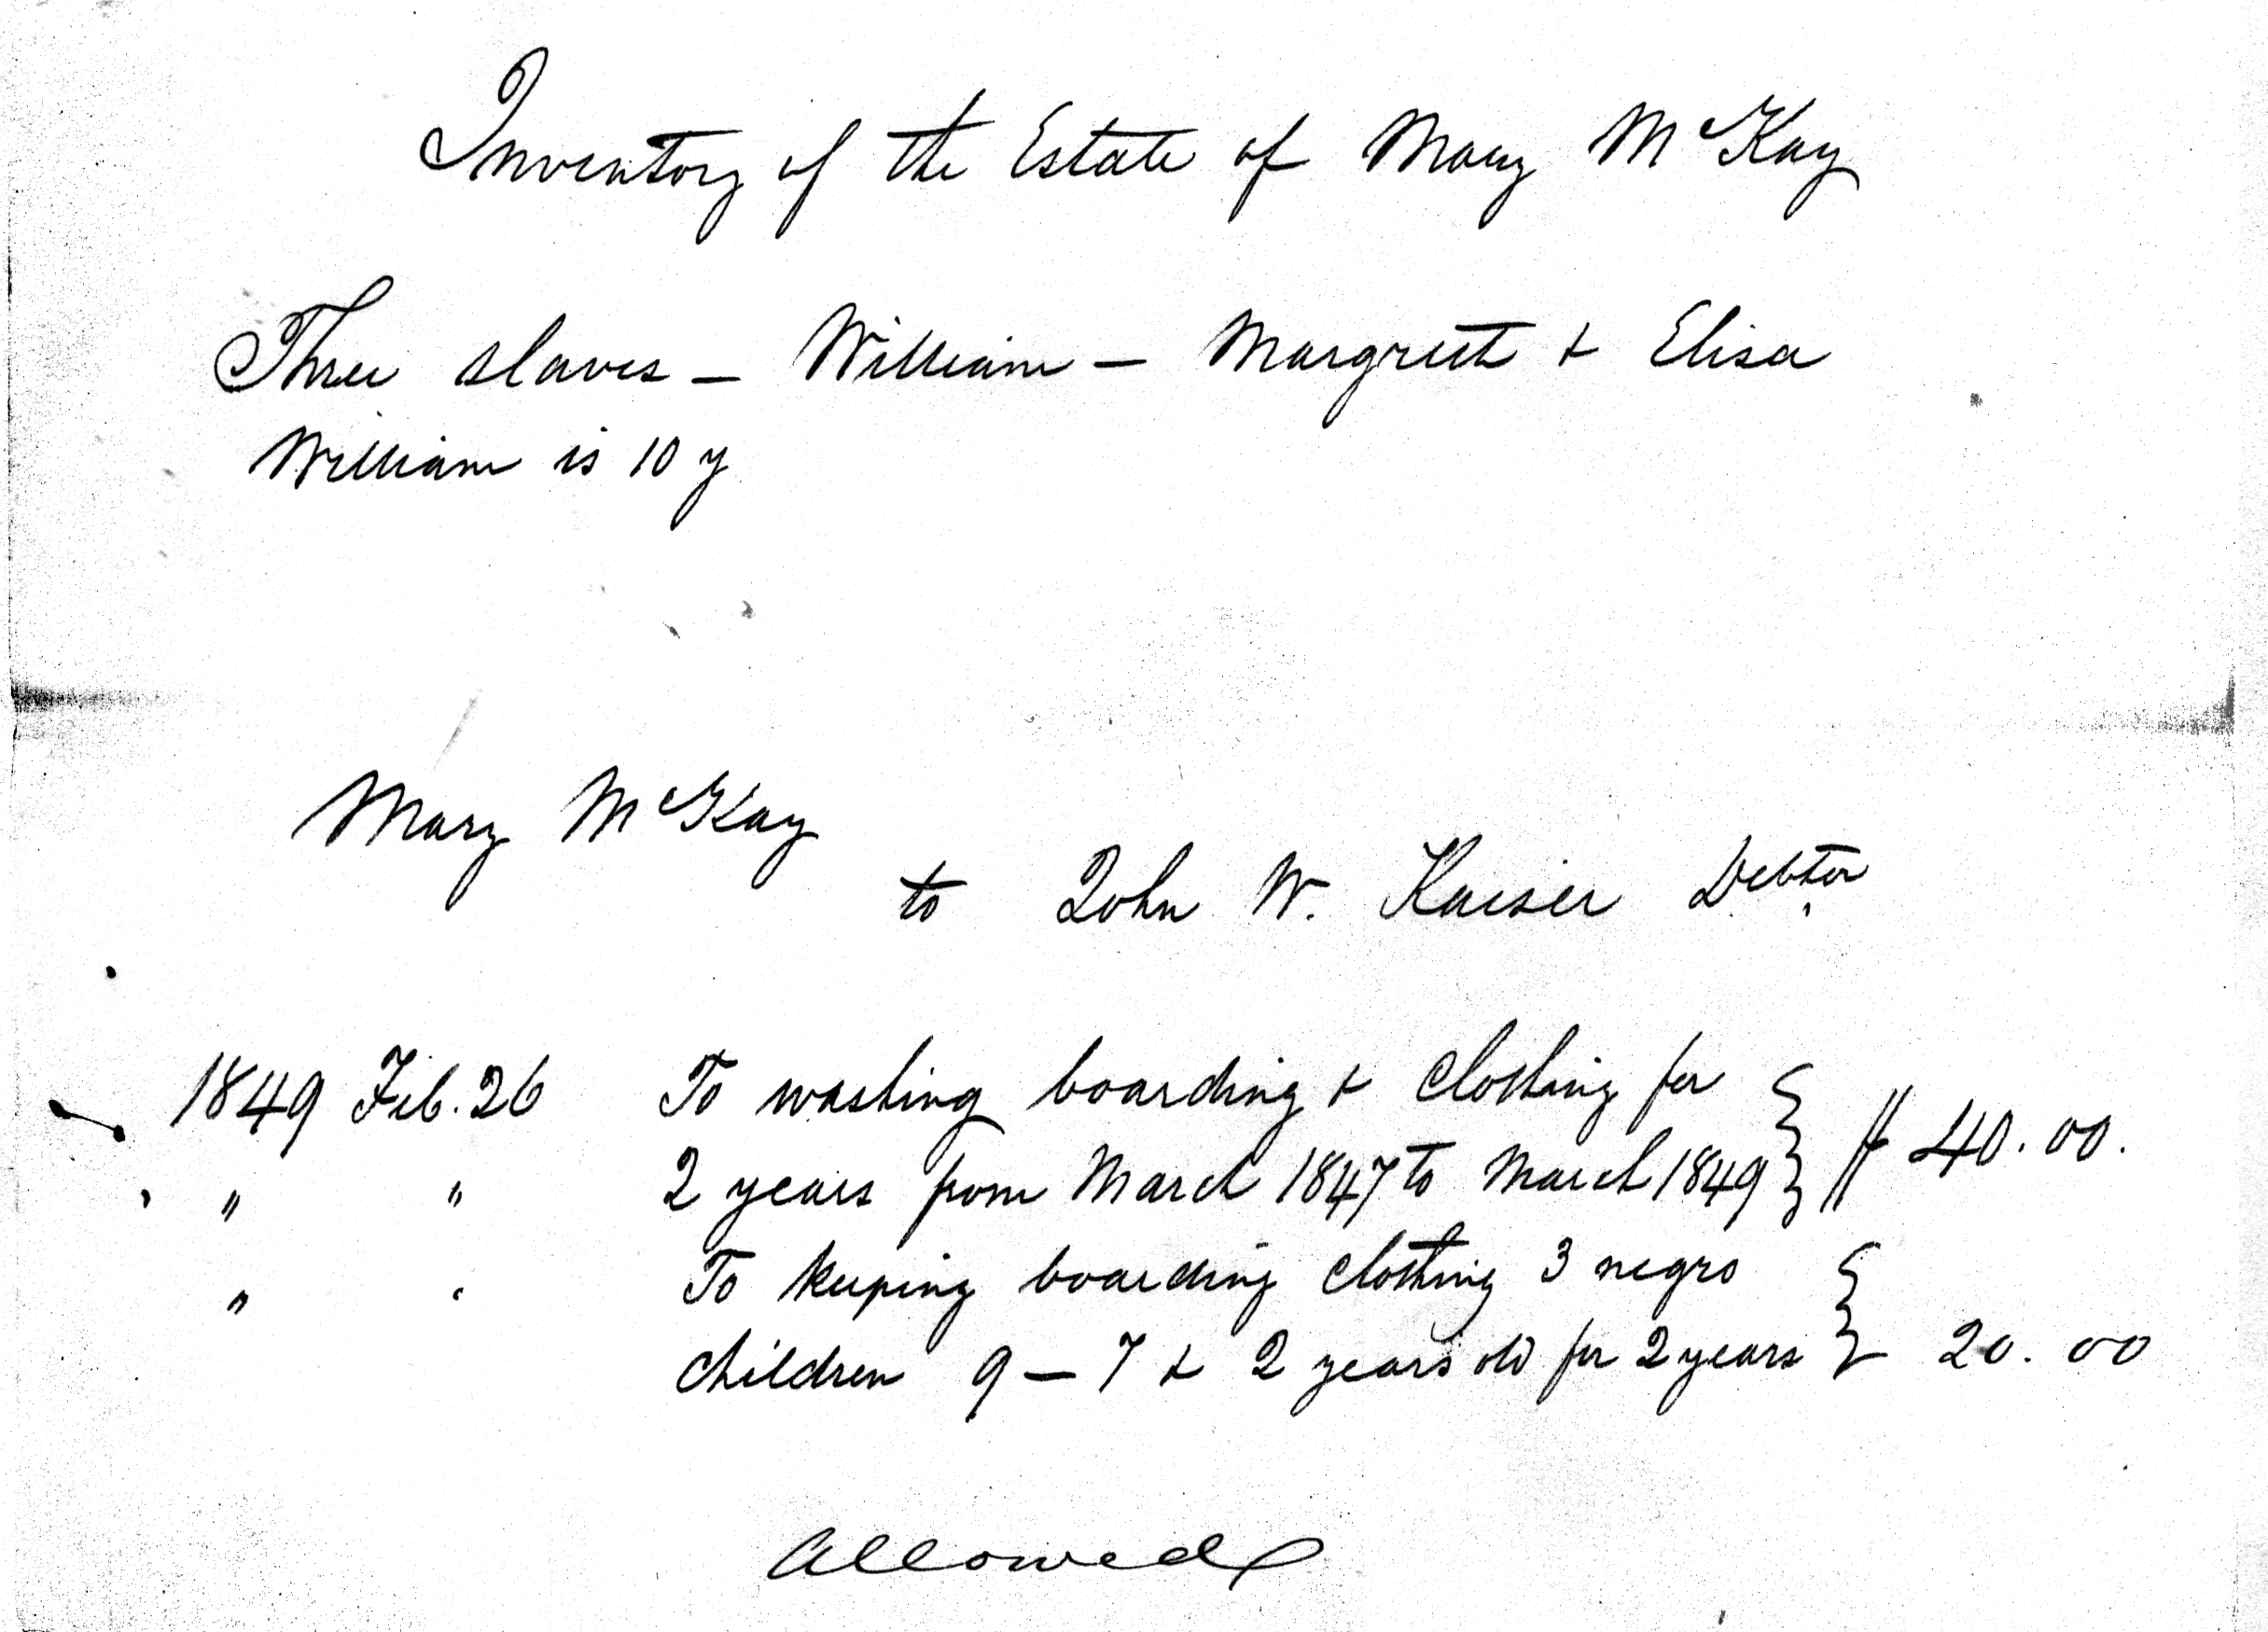 Inventory of the Estate of Mary McKay
Three slaves – William – Margreet & Elisa
William is 10 y
Mary McKay
to John W. Kaeser Debtor
1849 Feb. 26 To washing boarding & Clothing for
" " 2 years from March 1847 to March 1849 } $ 40.00.
" " To keeping boarding clothing 3 negro
children 9 – 7 & 2 years old for 2 years } 20.00
Allowed